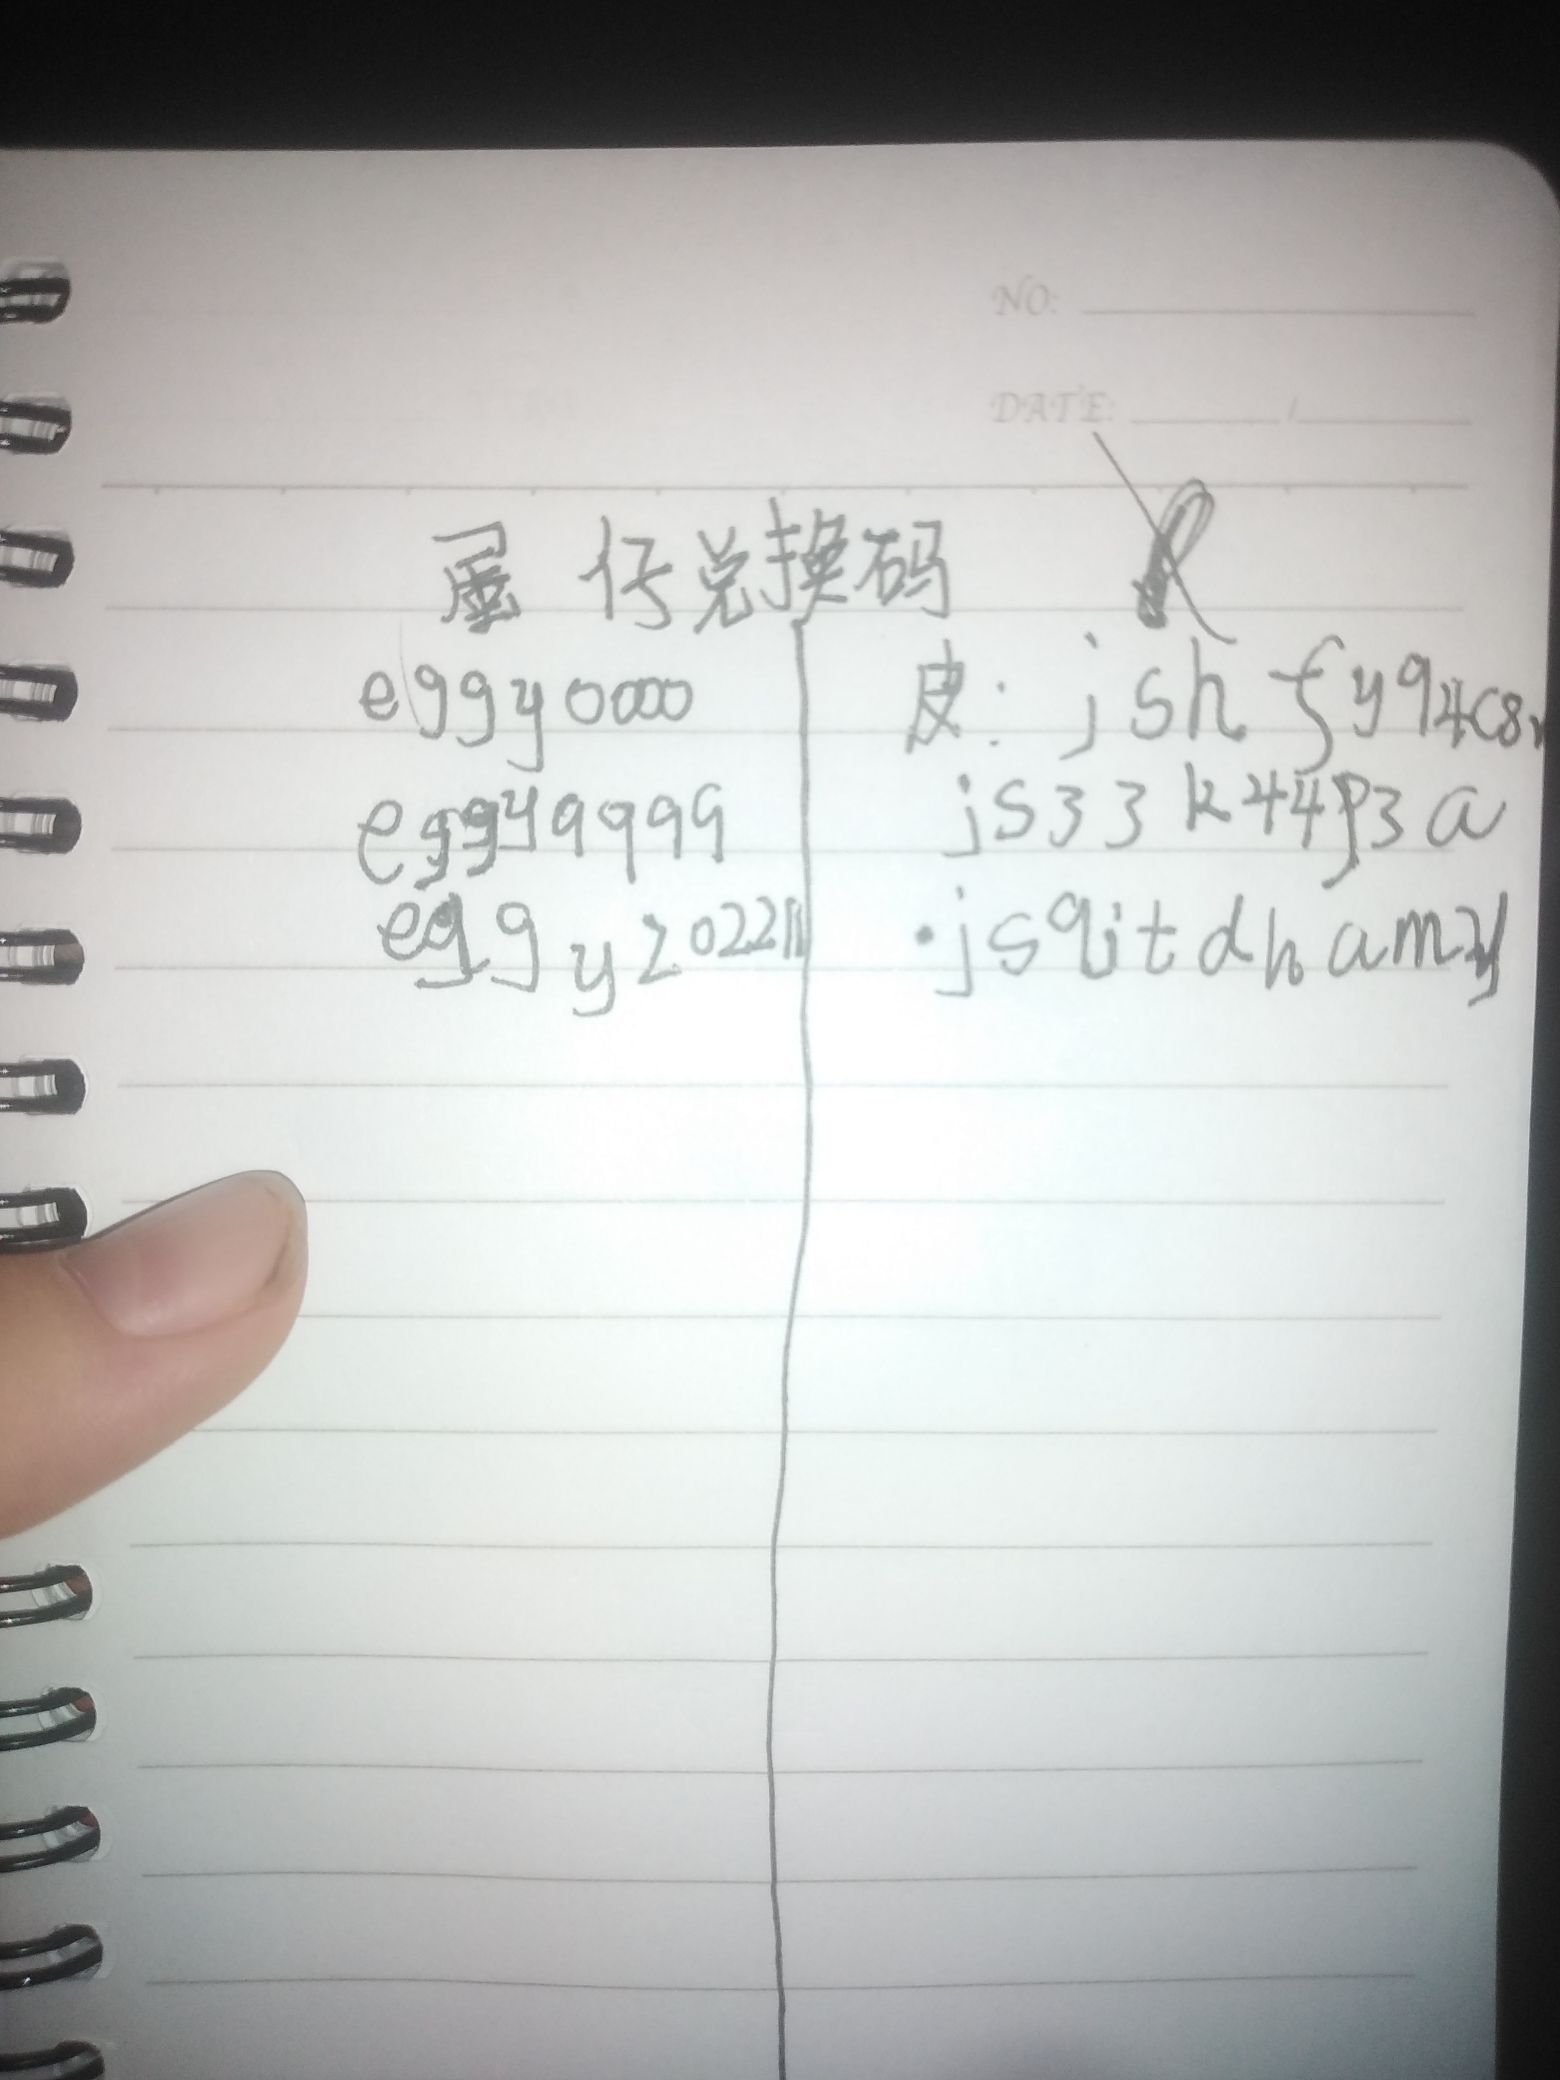 NO:
DATE: /
蛋仔兑换码
eggy0000
皮: jshfy94c8
eggy9999
js33k44p3a
eggy202211
·jsqitdhamy